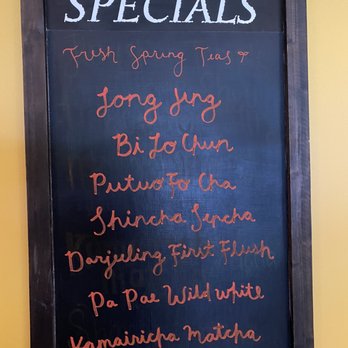 SPECIALS
Fresh Spring Teas
Long Jing
Bi Lo Chun
Putuo Fo Cha
Shincha Sencha
Darjeeling First Flush
Pa Pae Wild White
Kamairicha Matcha